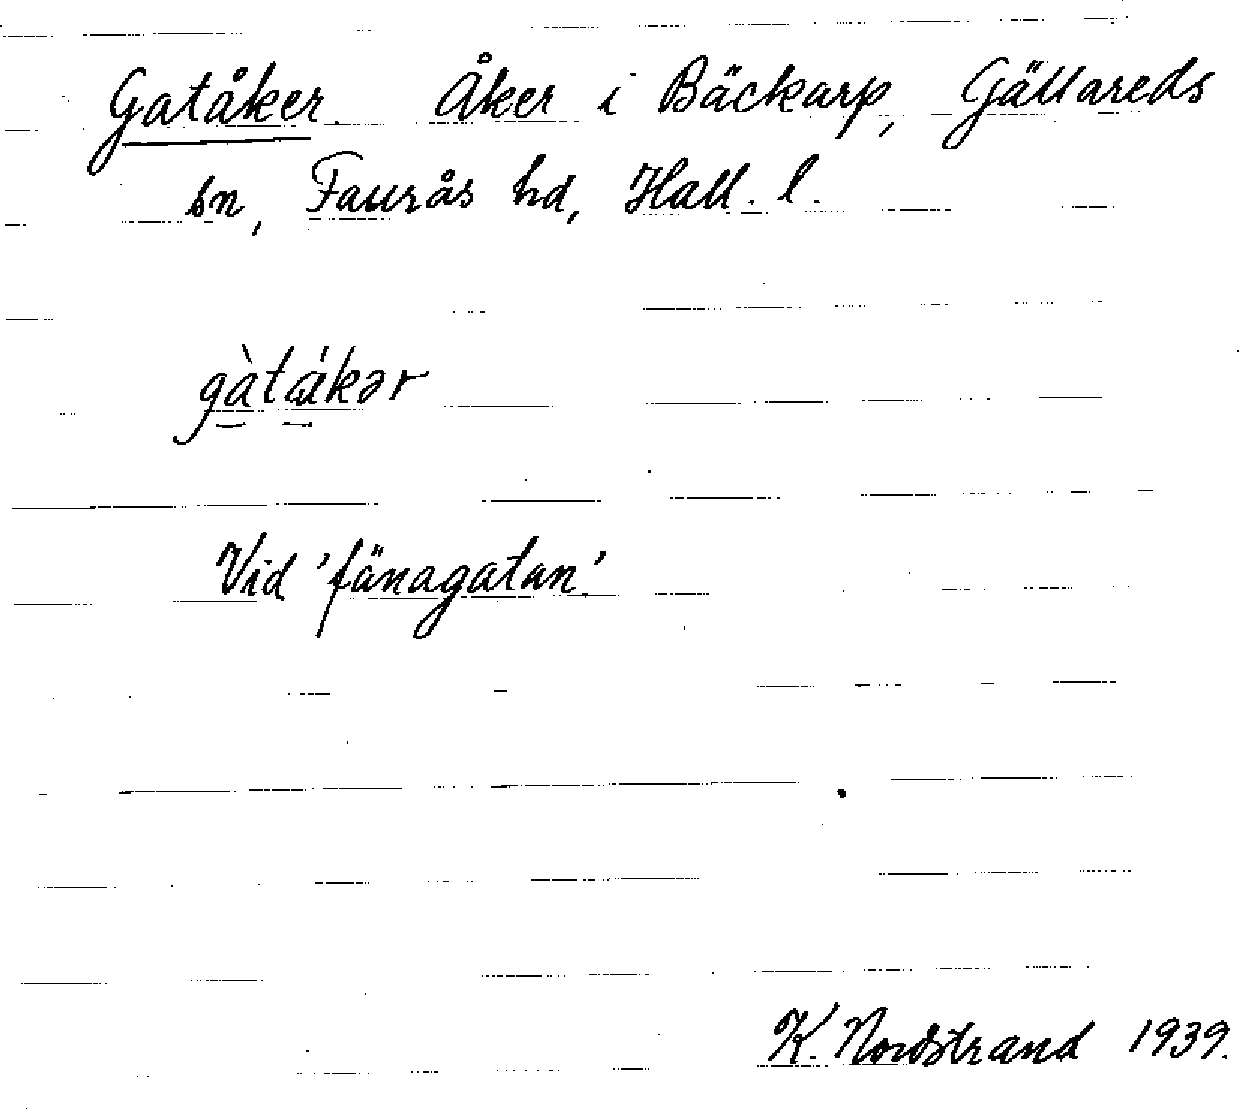 Gatåker. Åker i Bäckarp, Gällareds
sn, Faurås hd, Hall. l.
gàtákər
Vid 'fänagatan'.
K. Nordstrand 1939.